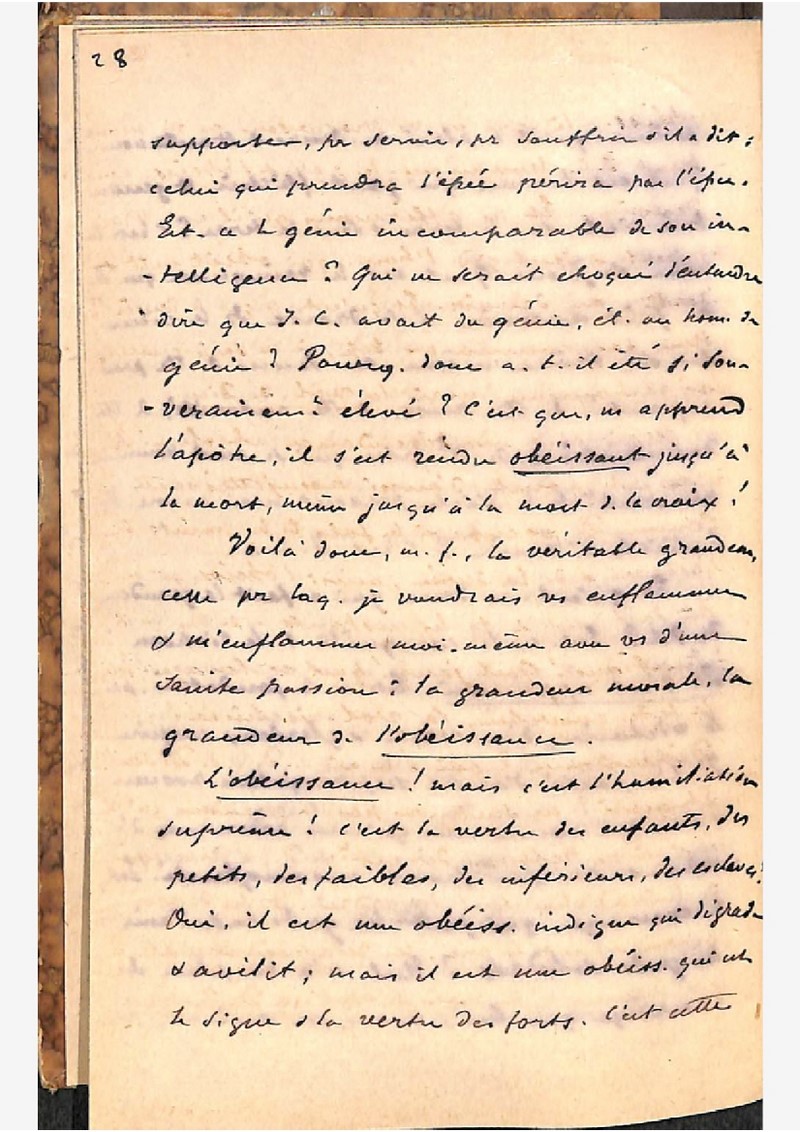 28
supporter, pr servir, pr souffrir s'il a dit:
celui qui prendra l'épée périra par l'épée.
Est-ce le génie incomparable de son in-
-telligence? Qui ne serait choqué d'entendre
dire que J. C. avait du génie, ét. un hom. de
génie? Pourq. donc a-t-il été si sou-
-verainemt élevé? C'est que, ns apprend
l'apôtre, il s'est rendu obéissant jusqu'à
la mort, même jusqu'à la mort d. la croix!
Voilà donc, m. f., la véritable grandeur,
celle pr laq. je voudrais vs enflammer
& m'enflammer moi-même avec vs d'une
sainte passion: la grandeur morale, la
grandeur de l'obéissance.
L'obéissance! mais c'est l'humiliation
suprême! c'est la vertu des enfants, des
petits, des faibles, des inférieurs, des esclaves!
Oui, il est une obéiss. indigne qui dégrade
& avilit; mais il est une obéiss. qui est
le signe & la vertu des forts. C'est cette